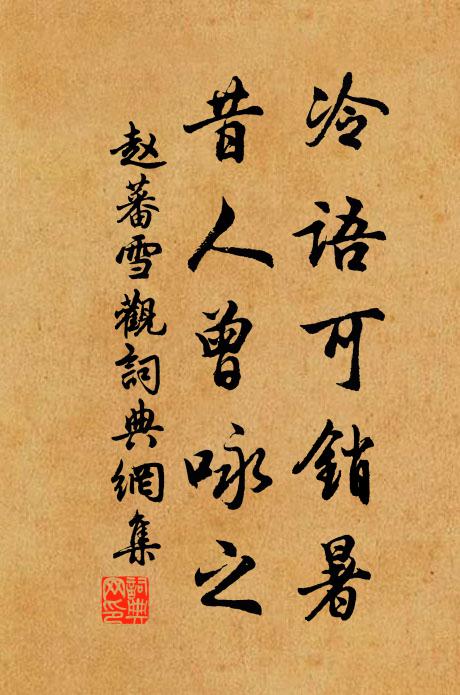 冷语可销暑
昔人曾咏之
赵蕃雪觀詞典網集
詞典
网印